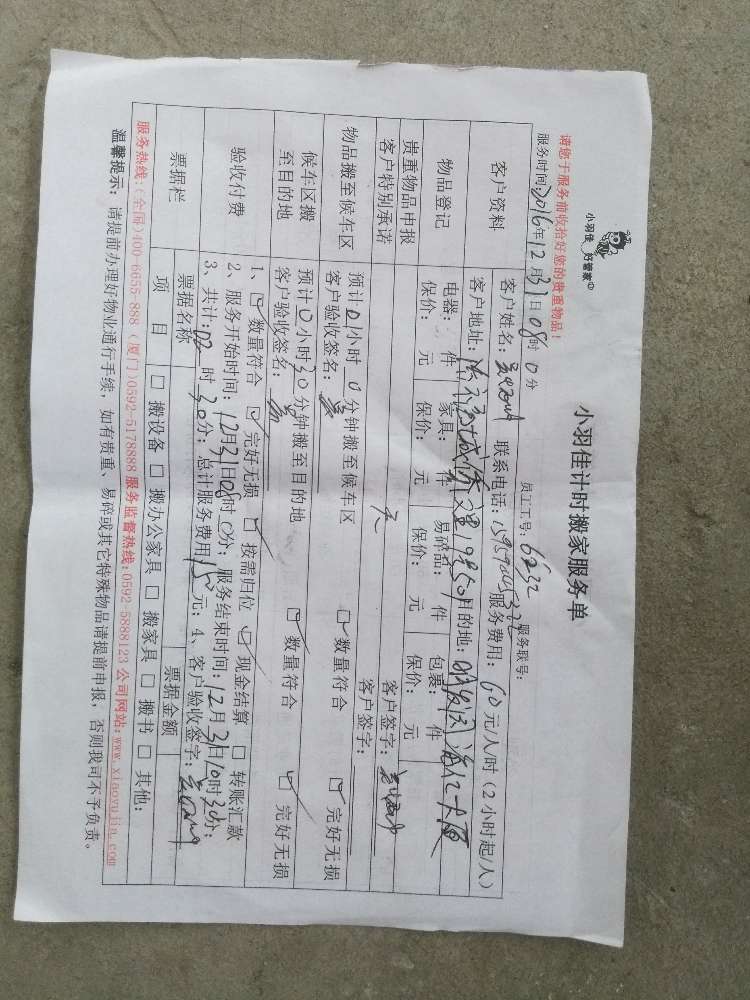 小羽佳 好管家
小羽佳计时搬家服务单
请您于服务前收拾好您的贵重物品!
员工工号: 6232 服务联号:
服务时间: 2016年12月31日08时0分
客户资料
客户姓名: 联系电话: 服务费用: 60元/人/时 (2小时起/人)
客户地址: 目的地:
物品登记
电器: 件 家具: 件 易碎品: 件 包裹: 件
保价: 元 保价: 元 保价: 元 保价: 元
贵重物品申报
客户特别承诺
无 客户签字:
物品搬至候车区
预计01小时0分钟搬至候车区 ☑ 数量符合 ☑ 完好无损
客户验收签名:
候车区搬
至目的地
预计0小时30分钟搬至目的地 ☑ 数量符合 ☑ 完好无损
客户验收签名:
验收付费
1、☑ 数量符合 ☑ 完好无损 ☑ 按需归位 ☑ 现金结算 □ 转账汇款
2、服务开始时间: 12月31日08时0分; 服务结束时间: 12月31日10时30分;
3、共计: 02时30分; 总计服务费用 元; 4、客户验收签字:
票据栏
票据名称 票据金额
项 目 □ 搬设备 □ 搬办公家具 □ 搬家具 □ 搬书 □ 其他:
服务热线: (全国)400-6655-888 (厦门)0592-5178888 服务监督热线:0592-5888123 公司网站:www.xiaoyujia.com
温馨提示: 请提前办理好物业通行手续, 如有贵重、易碎或其它特殊物品请提前申报, 否则我司不予负责。